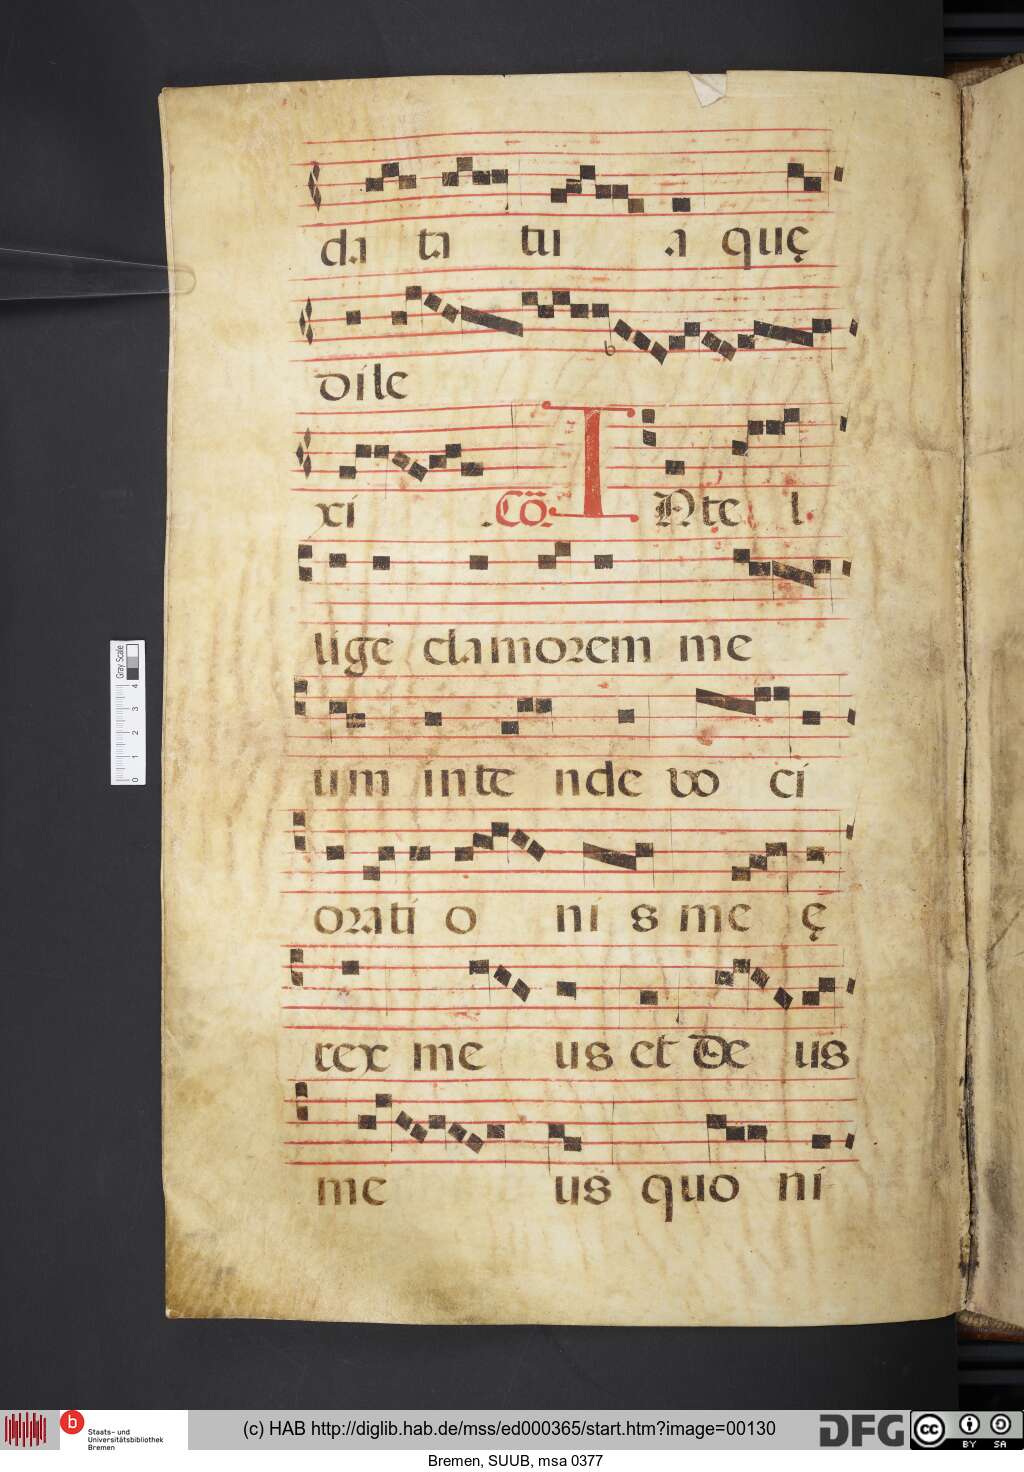 da ta tu a quę
dile
xi .Cõ. INte l
lige clamorem me
um inte nde vo ci
orati o ni s me ę
rex me us et De us
me us quo ni
Gray Scale
4 3 2 1 0
b Staats- und Universitätsbibliothek Bremen
(c) HAB http://diglib.hab.de/mss/ed000365/start.htm?image=00130
DFG
cc BY SA
Bremen, SUUB, msa 0377